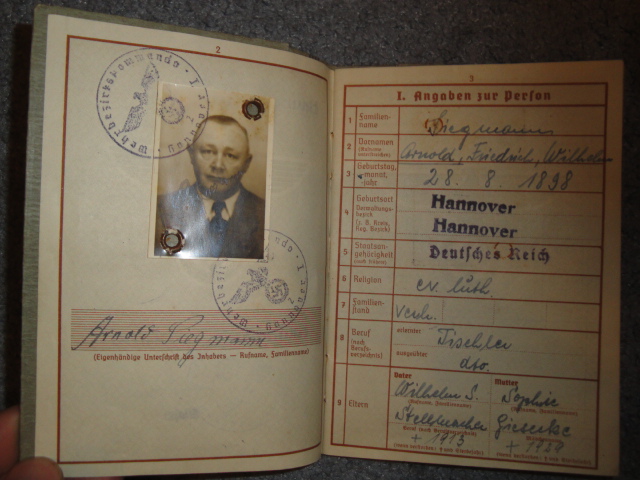 2
Wehrbezirkskommando Hannover I
Wehrbezirkskommando Hannover I
Arnold Siegmann
(Eigenhändige Unterschrift des Inhabers — Rufname, Familienname)
3
I. Angaben zur Person
1 Familien-
name
Siegmann
2 Vornamen
(Rufname
unterstreichen)
Arnold, Friedrich, Wilhelm
3 Geburtstag,
-monat,
-jahr
28. 8. 1898
4 Geburtsort
Verwaltungs-
bezirk
(z. B. Kreis,
Reg. Bezirk)
Hannover
Hannover
5 Staatsan-
gehörigkeit
(auch frühere)
Deutsches Reich
6 Religion
ev. luth.
7 Familien-
stand
verh.
8 Beruf
(nach
Berufs-
verzeichnis)
erlernter
Tischler
ausgeübter
dto.
9 Eltern
Vater
Wilhelm S.
(Rufname, Familienname)
Stellmacher
+ 1915
Mutter
Sophie
(Rufname, Familienname)
Gieseke